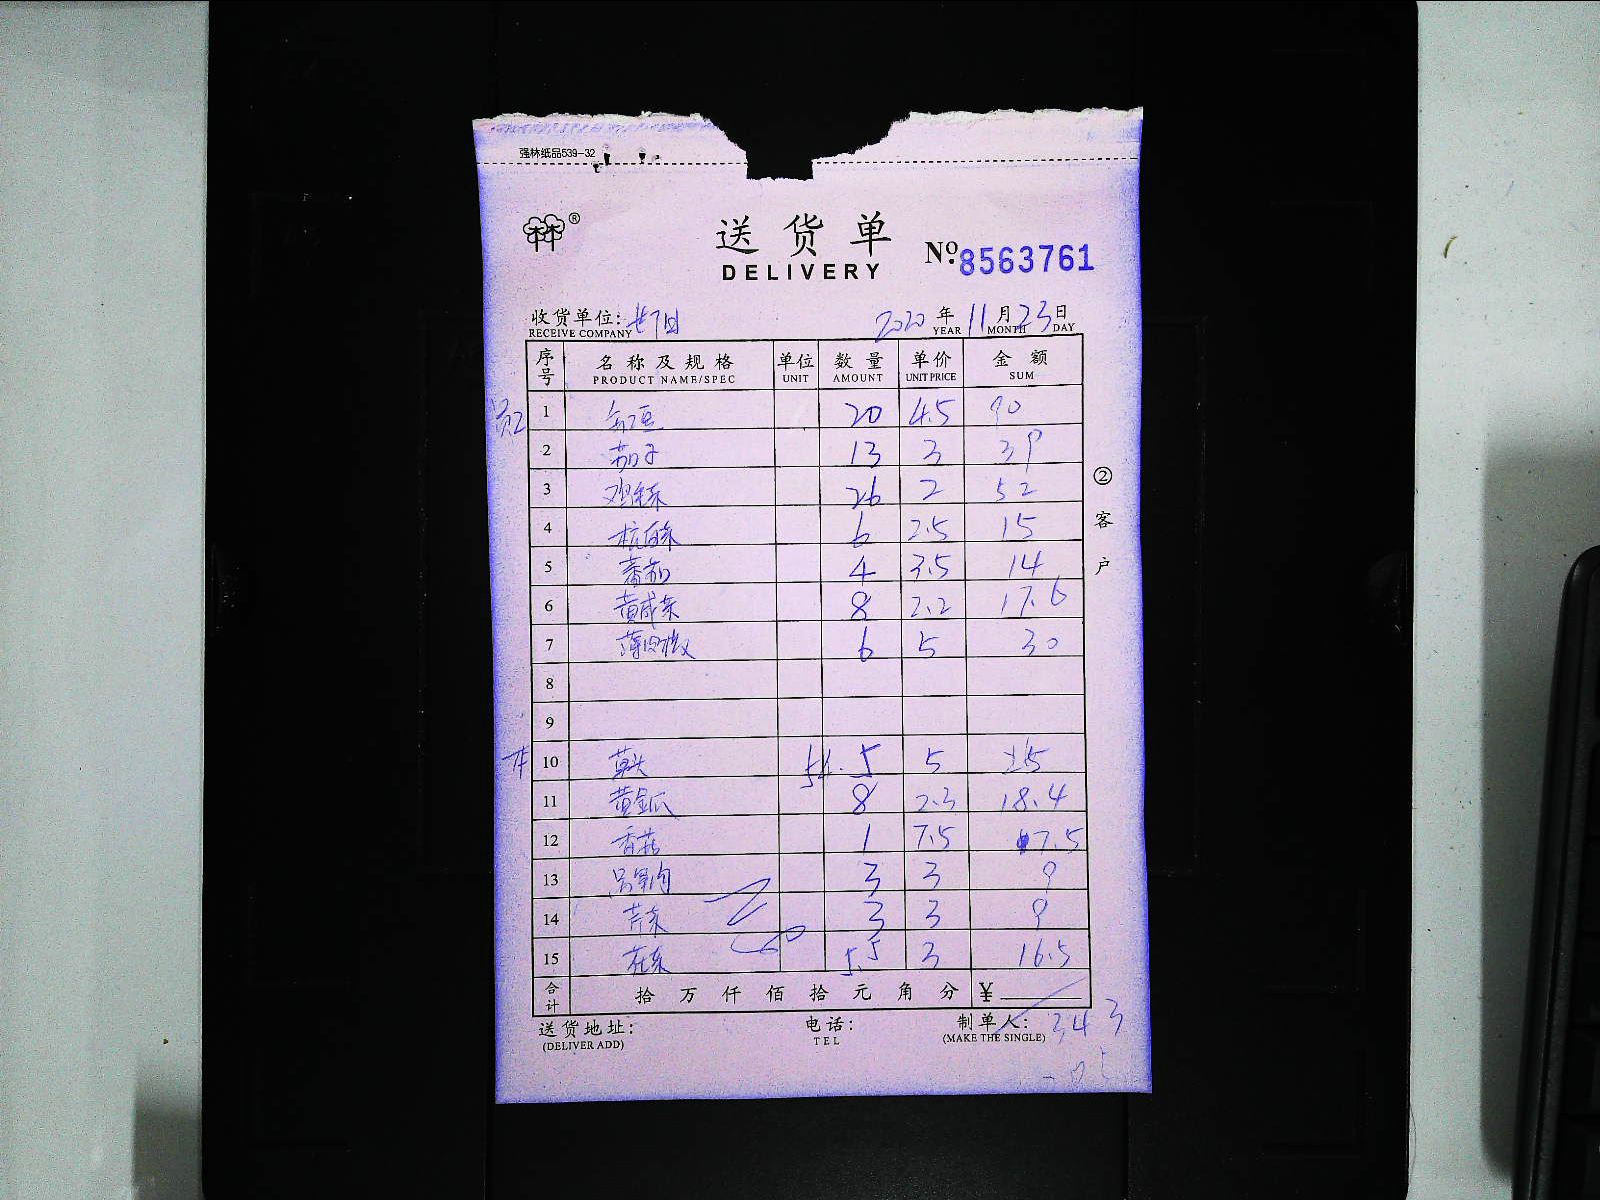 强林纸品539-32
®
送货单
DELIVERY
Nº 8563761
收货单位:
RECEIVE COMPANY
2020 年 11 月 23 日
YEAR MONTH DAY
序号 名称及规格 单位 数量 单价 金额
PRODUCT NAME/SPEC UNIT AMOUNT UNIT PRICE SUM
1 豇豆 20 4.5 90
2 茄子 13 3 39
3 26 2 52
4 杭白菜 6 2.5 15
5 番茄 4 3.5 14
6 8 2.2 17.6
7 6 5 30
8
9
10 草头 5 5 25
11 8 2.3 18.4
12 香菇 1 7.5 7.5
13 3 3 9
14 芹菜 3 3 9
15 花菜 5.5 3 16.5
合计 拾 万 仟 佰 拾 元 角 分 ¥
343
送货地址: 电话: 制单人:
(DELIVER ADD) TEL (MAKE THE SINGLE)
②客户